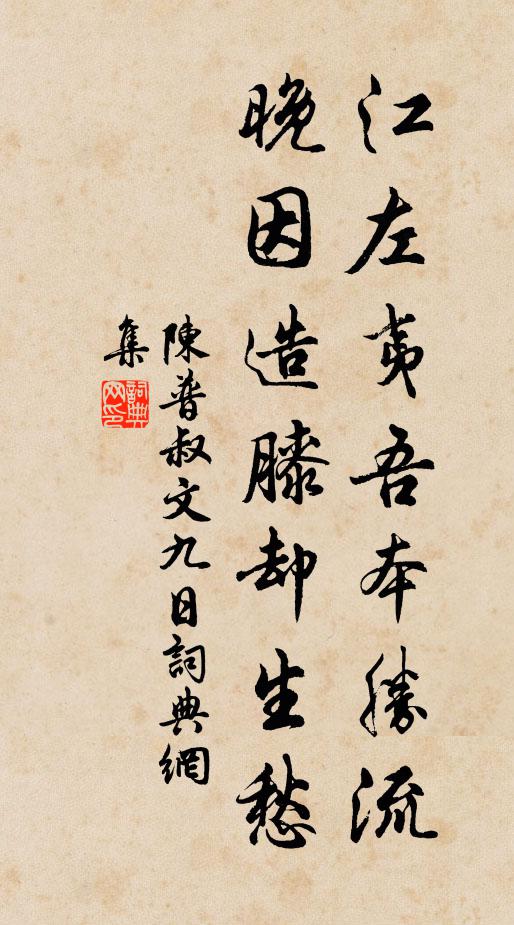 江左夷吾本勝流
晚因造膝却生愁
陳普叔文九日詞典網
集
詞典網印